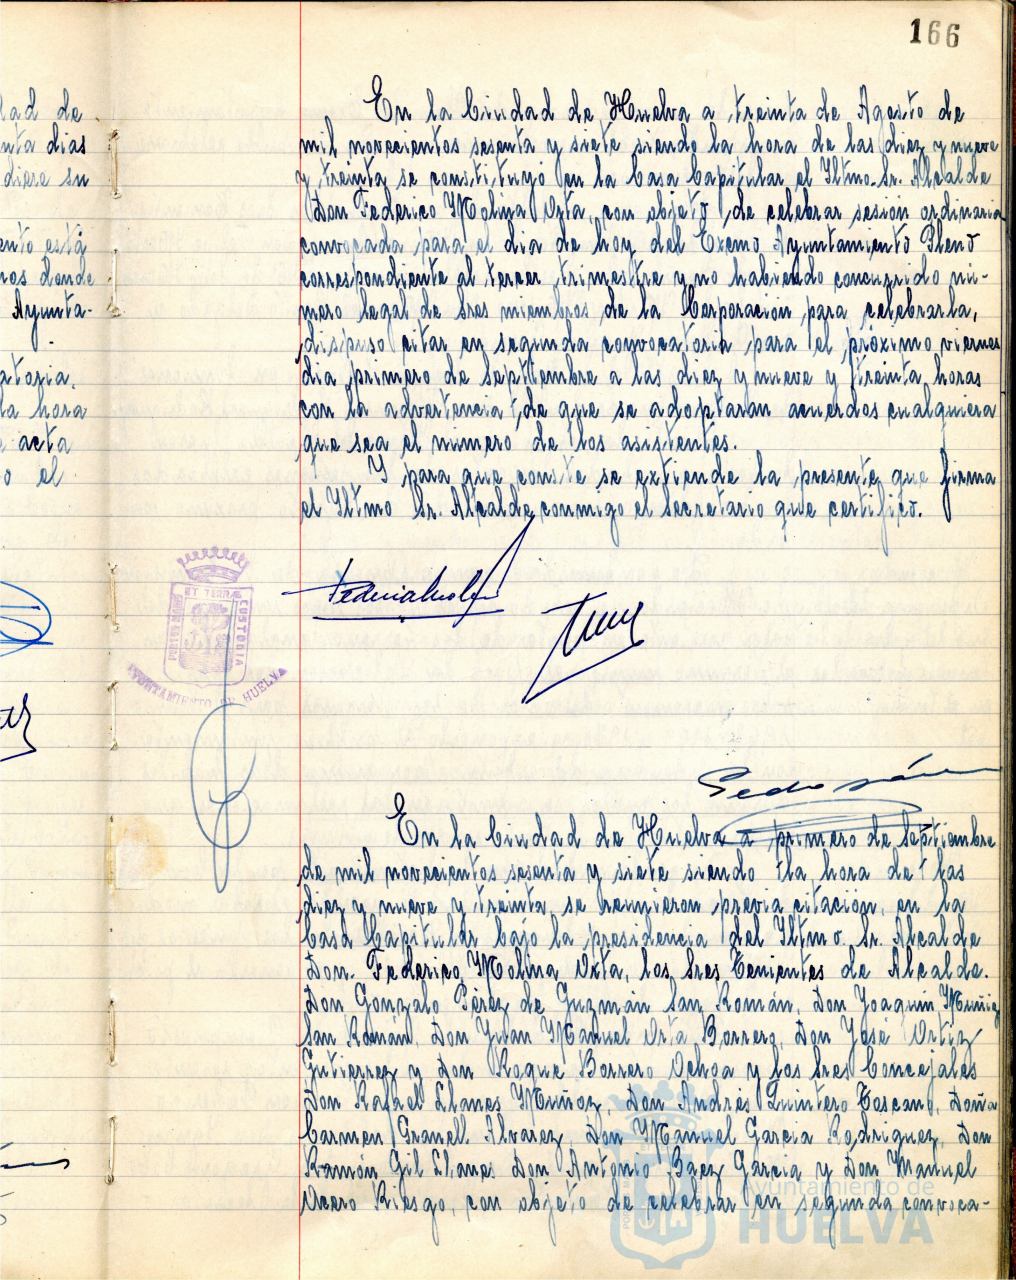 166
lad de
nta dias
diere su
ento está
nos donde
Ayunta-
y.
atoria.
la hora
e acta
o el
En la Ciudad de Huelva a treinta de Agosto de
mil novecientos sesenta y siete siendo la hora de las diez y nueve
y treinta se constituyó en la Casa Capitular el Iltmo. Sr. Alcalde
Don Federico Molina Orta, con objeto de celebrar sesión ordinaria
convocada para el dia de hoy del Excmo Ayuntamiento Pleno
correspondiente al tercer trimestre y no habiendo concurrido nú-
mero legal de Sres miembros de la Corporación para celebrarla,
dispuso citar en segunda convocatoria para el próximo viernes
dia primero de Septiembre a las diez y nueve y treinta horas
con la advertencia de que se adoptaran acuerdos cualquiera
que sea el número de los asistentes.
Y para que conste se extiende la presente que firma
el Iltmo Sr. Alcalde conmigo el Secretario que certifico.
PORTUS MARIS ET TERRAE CUSTODIA
AYUNTAMIENTO DE HUELVA
En la Ciudad de Huelva a primero de Septiembre
de mil novecientos sesenta y siete siendo la hora de las
diez y nueve y treinta se reunieron previa citación, en la
Casa Capitular bajo la presidencia del Iltmo. Sr. Alcalde
Don. Federico Molina Orta, los Sres Tenientes de Alcalde.
Don Gonzalo Pérez de Guzmán San Román, Don Joaquín Muñiz
San Román, Don Juan Manuel Orta Borrero, Don José Ortiz
Gutierrez y Don Roque Borrero Ochoa y los Sres Concejales
Don Rafael Llanes Muñoz, Don Andrés Quintero Toscano, Doña
Carmen Granell Alvarez, Don Manuel Garcia Rodriguez, Don
Ramón Gil Llanes Don Antonio Baez Garcia y Don Manuel
Ucero Riesgo, con objeto de celebrar en segunda convoca-
Ayuntamiento de
HUELVA